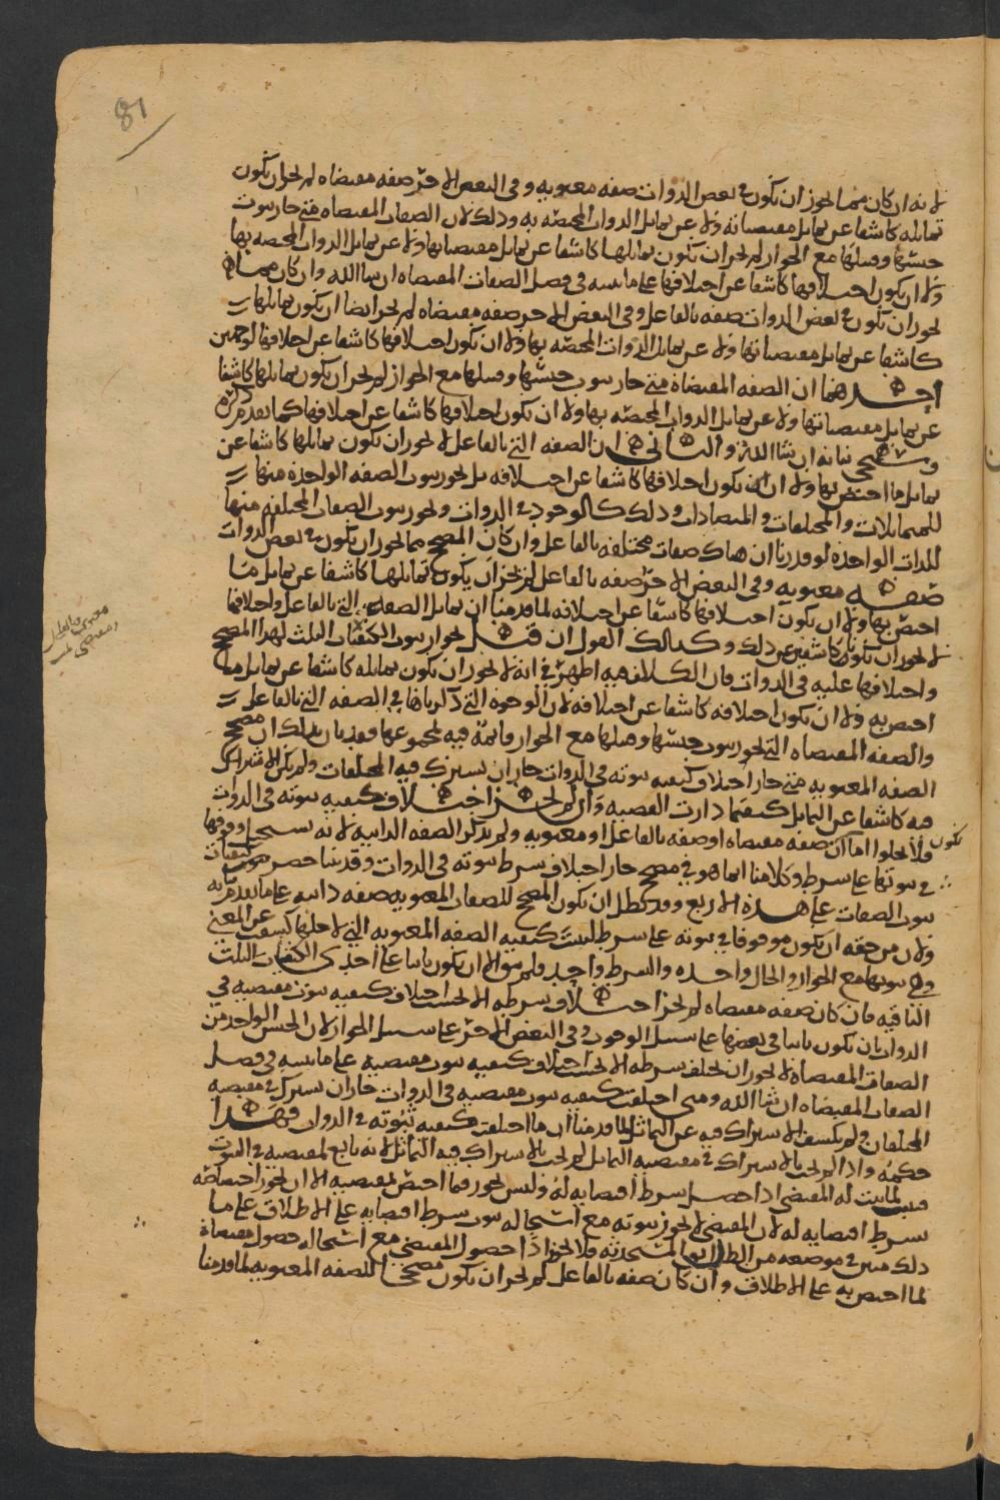 81
لانه ان كان مما لجوز ان تكون في بعض الذوات صفه معنويه وفى البعض الاخر صفه مقتضاه لم لجز ان تكون
تماثله كاشفا عن تماثل مقتضياته ولا عن تماثل الذوات المختصه به وذلك لان الصفات المقتضاه متى جاز ثبوت
جنسها ومثلها مع الجواز لم لجز ان تكون تماثلها كاشفا عن تماثل مقتضياتها ولا عن تماثل الذوات المختصه بها
ولا ان يكون اختلافها كاشفا عن اختلافها على ما نبينه في فصل الصفات المقتضاه ان شا الله وان كان مما
لجوز ان تكون في بعض الذوات صفه بالفاعل وفى البعض الاخر صفه مقتضاه لم لجز ايضا ان يكون تماثلها
كاشفا عن تماثل مقتضياتها ولا عن تماثل الذوات المختصه بها ولا ان تكون اختلافها كاشفا عن اختلافها لوجهين
احدهما ان الصفه المقتضاه متى جاز ثبوت جنسها ومثلها مع الجواز لم لجز ان يكون تماثلها كاشفا
عن تماثل مقتضياتها ولا عن تماثل الذوات المختصه بها ولا ان تكون اختلافها كاشفا عن اختلافها كما تقدم ذكره
وسيجى بيانه ان شا الله والثانى ان الصفه التي بالفاعل لا لجوز ان تكون تماثلها كاشفا عن
تماثل ما اختص بها ولا ان تكون اختلافها كاشفا عن اختلافه بل لجوز ثبوت الصفه الواحده منها
للمتماثلات والمختلفات والمتضادات وذلك كالوجود في الذوات ولجوز ثبوت الصفات المختلفه منها
للذات الواحده لو قدرنا ان هناك صفات مختلفه بالفاعل وان كان المصحح مما لجوز ان يكون في بعض الذوات
صفه معنويه وفى البعض الاخر صفه بالفاعل لم لجز ان يكون تماثلها كاشفا عن تماثل ما
اختص بها ولا ان يكون اختلافها كاشفا عن اختلافه لما قدمنا ان تماثل الصفه التي بالفاعل واختلافها
لا لجوز ان تكون كاشفين عن ذلك وكذلك القول ان قيل لجواز ثبوت الكيفيات الثلث لهذا المصحح
واختلافها عليه في الذوات فان الكلام فيه اظهر في انه لا لجوز ان تكون تماثله كاشفا عن تماثل ما
اختص به ولا ان تكون اختلافه كاشفا عن اختلافه لان الوجوه التي ذكرناها في الصفه التي بالفاعل
والصفه المقتضاه التي لجوز ثبوت جنسها ومثلها مع الجواز قائمة فيه لمجموعها فقد بان بذلك ان مصحح
الصفه المعنويه متى جاز اختلاف كيفيه ثبوته في الذوات جاز ان تشترك فيه المختلفات ولم يكن الاشتراك
فيه كاشفا عن التماثل كيفما دارت القضيه وان لم لجز اختلاف كيفيه ثبوته في الذوات
فلا لخلوا اما ان تكون صفه مقتضاه او صفه بالفاعل او معنويه ولم يذكر الصفه الذاتيه لانه يستحيل وقوفها
في ثبوتها على شرط وكلامنا انما هو في مصحح جاز اختلاف شرط ثبوته في الذوات وقد بينا حصر كيفيات
ثبوت الصفات على هذه الاربع وقد بطل ان يكون المصحح للصفات المعنويه صفه ذاتيه على ما تقدم
ولان من حقه ان يكون موقوفا في ثبوته على شرط كيفيه الصفه المعنويه التي لاجلها كشفت عن المعنى
وهى ثبوتها مع الجواز والحال واحده والشرط واحد فلم يبق الا ان يكون ثابتا على احدى الكيفيات الثلث
الباقيه فان كان صفه مقتضاه لم لجز اختلاف شرطه الا لحسب اختلاف كيفيه ثبوت مقتضيه في
الذوات بان يكون ثابتا في بعضها على سبيل الوجوب وفى البعض الاخر على سبيل الجواز لان الجنس الواحد من
الصفات المقتضاه لا لجوز ان لختلف شرطه الا لحسب اختلاف كيفيه ثبوت مقتضيه على ما نبينه في فصل
الصفات المقتضاه ان شا الله ومتى اختلفت كيفيه ثبوت مقتضيه في الذوات جاز ان تشترك في مقتضيه
المختلفان ولم يكشف الاشتراك فيه عن التماثل لما قدمنا ان ما اختلفت كيفيه ثبوته في الذوات فهذا
حكمه واذا لم لجب بالاشتراك في مقتضيه التماثل لم لجب بالاشتراك فيه التماثل لانه تابع لمقتضيه في الثبوت
فيثبت لما يثبت له المقتضى اذا حصل شرط اقتضايه له وليس لجوز فيما اختص لمقتضيه الا ان لجوز اختصاصه
شرط اقتضايه له لان المقتضى لا لجوز ثبوته مع استحاله ثبوت شرط اقتضايه على الاطلاق على ما
ذلك مبين في موضعه من فلا لجوز اذا حصول المقتضى مع استحاله حصول مقتضاه
لما اختص به على الاطلاق وان كان صفه بالفاعل لم لجز ان تكون مصححا للصفه المعنويه لما قدمنا
معنويه وبالفاعل
ومقتضى